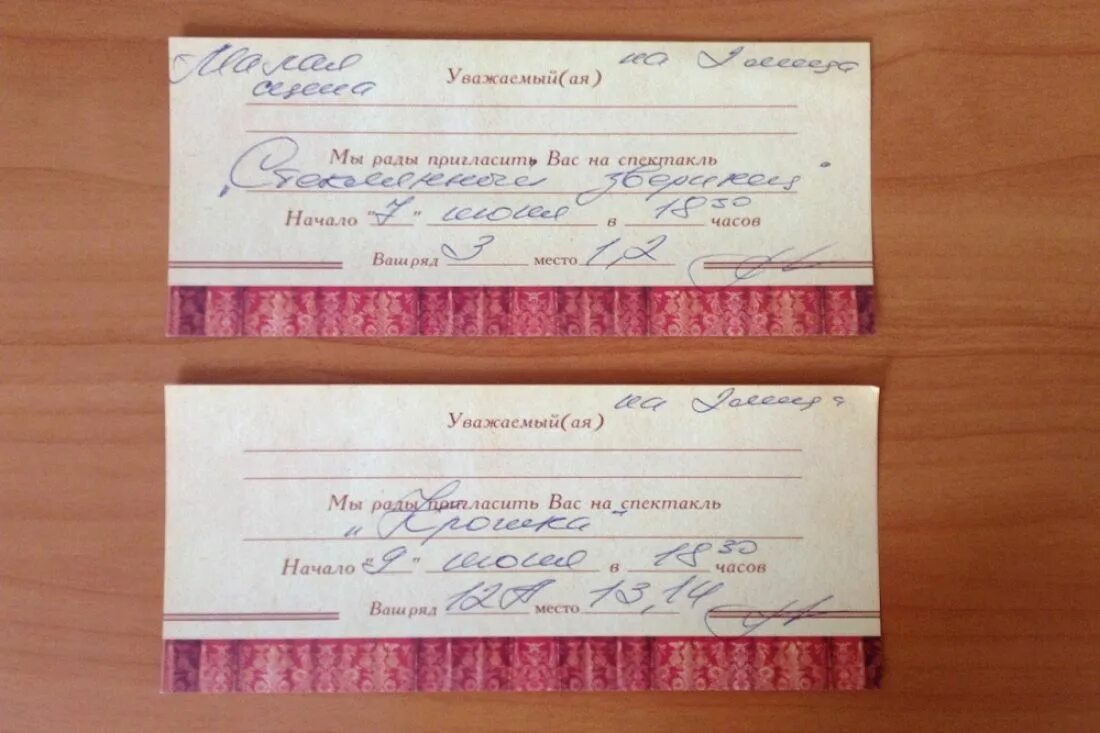 Малая на 2 лица
сцена Уважаемый(ая)
Мы рады пригласить Вас на спектакль
„Стеклянный зверинец"
Начало "7" июня в 18 30 часов
Ваш ряд 3 место 1,2
на 2 лица
Уважаемый(ая)
Мы рады пригласить Вас на спектакль
„Крошка"
Начало "9" июня в 18 30 часов
Ваш ряд 12А место 13,14